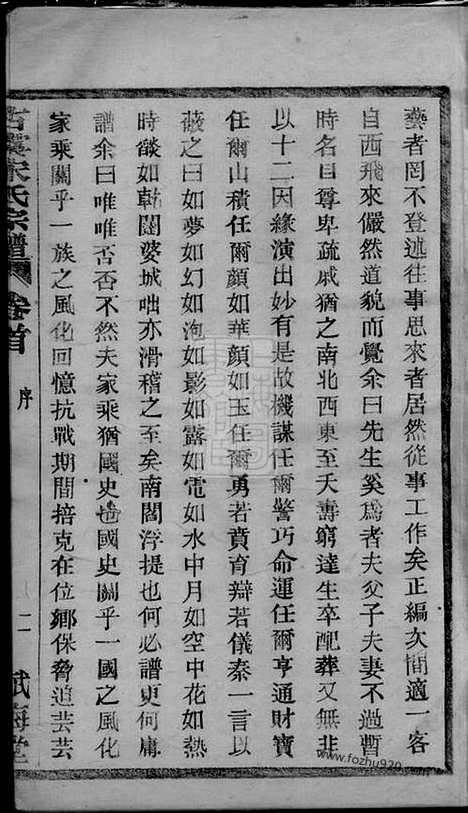 藝者罔不登述往事思來者居然從事工作矣正編次間適一客
自西飛來儼然道貌而覺余曰先生奚爲者夫父子夫妻不過暫
時名目尊卑疏戚猶之南北西東至夭壽窮達生卒配葬又無非
以十二因緣演出妙有是故機謀任爾警巧命運任爾亨通財寶
任爾山積任爾顏如華顏如玉任爾勇若賁育辯若儀秦一言以
蔽之曰如夢如幻如泡如影如露如電如水中月如空中花如熱
時燄如乾闥婆城咄亦滑稽之至矣南閻浮提也何必譜更何庸
譜余曰唯唯否否不然夫家乘猶國史也國史關乎一國之風化
家乘關乎一族之風化回憶抗戰期間掊克在位鄉保脅迫芸芸
宋氏宗譜 卷首 序 二
www.fozhu920.com